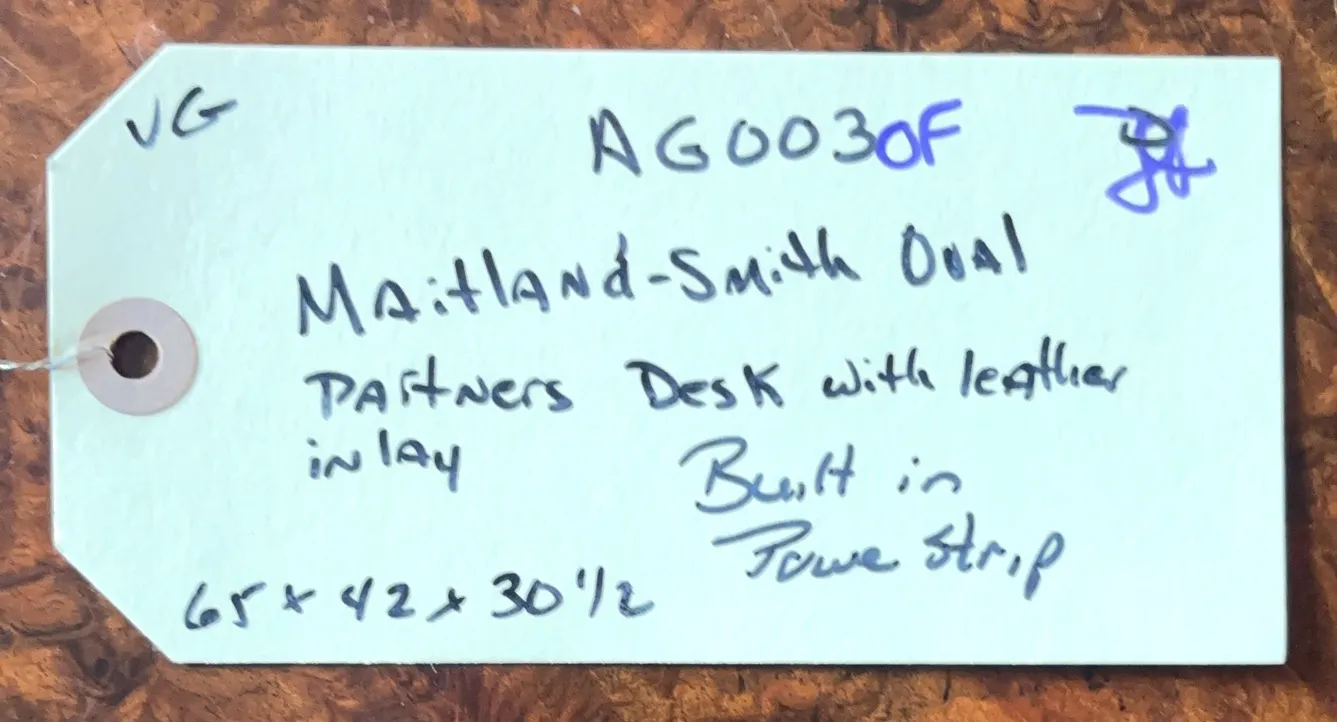 VG
AG0030F
Maitland-Smith Oval
Partners Desk with leather
inlay
Built in
Powe Strip
65 x 42 x 30 1/2